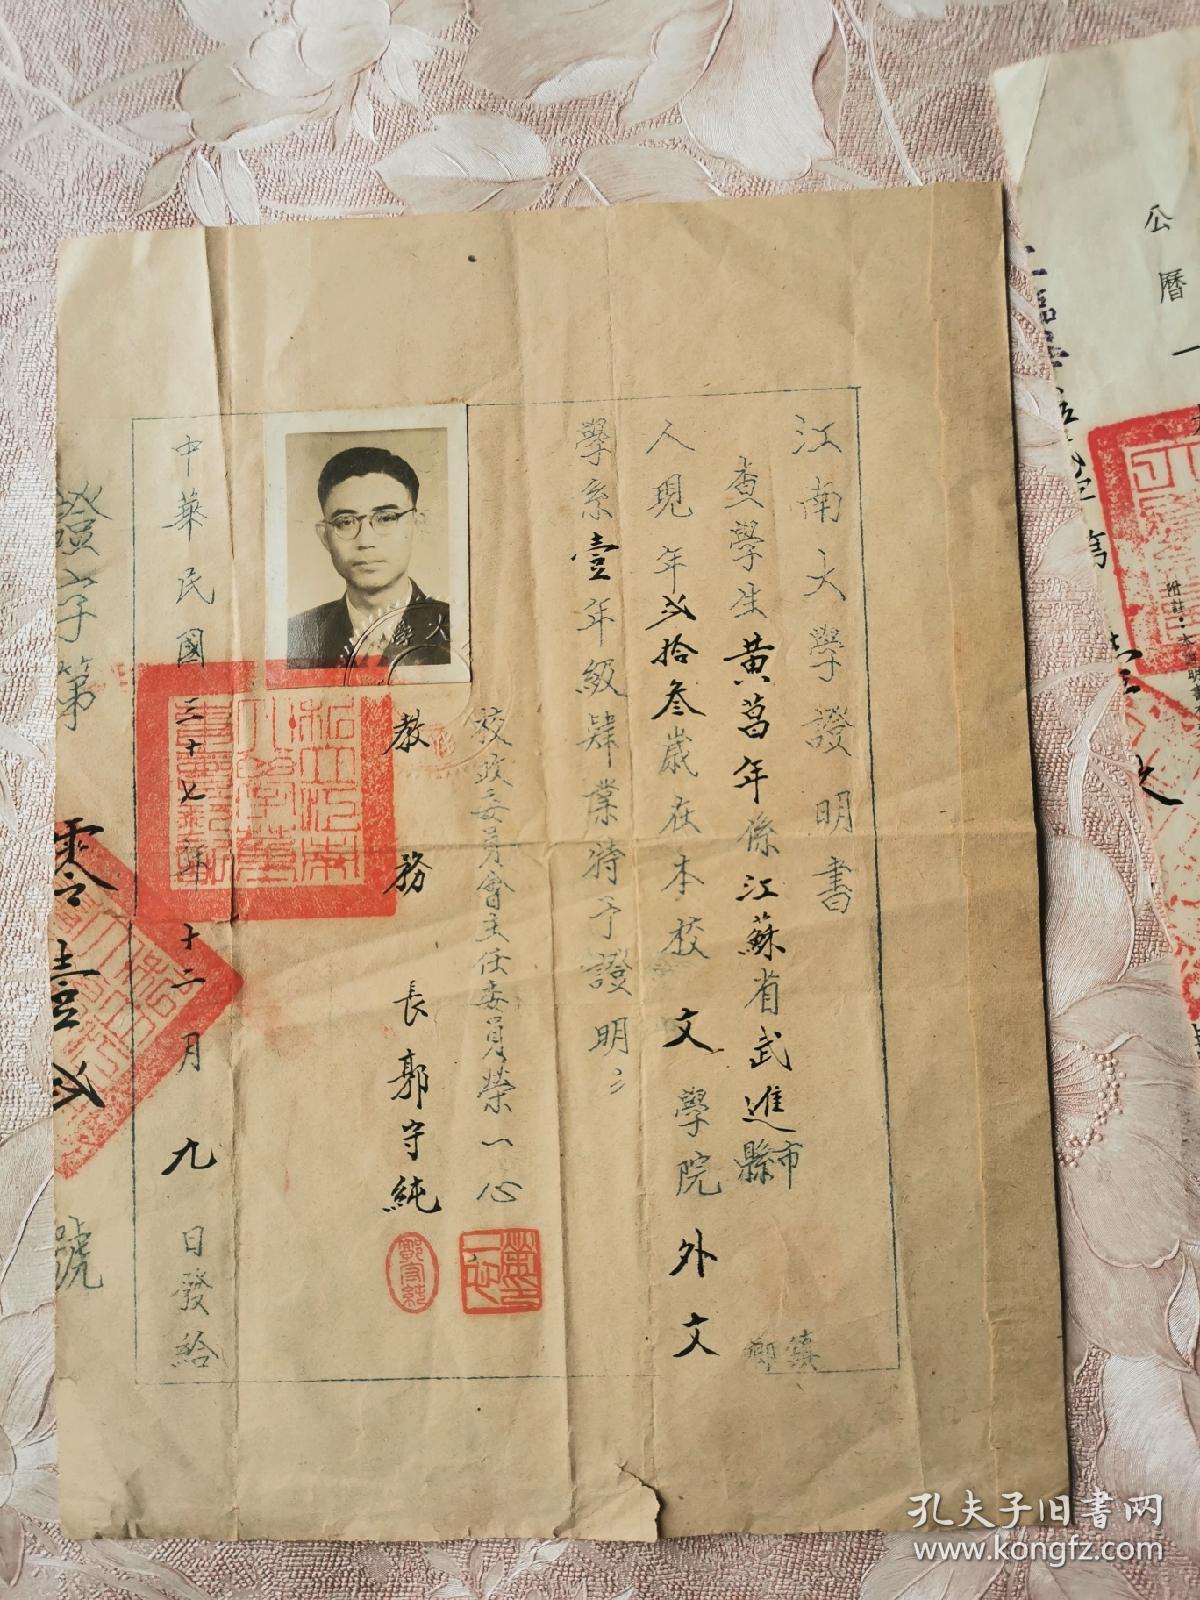 江南大學證明書
查學生黃菖年係江蘇省武進縣市
鎮鄉
人現年弍拾叁歲在本校文學院外文
學系壹年級肄業特予證明
校政委員會主任委員榮一心
教務長郭守純
中華民國三十七年十二月九日發給
證字第零壹弍號
榮一心
郭守純
大學
公曆一
第
附註
孔夫子旧书网
www.kongfz.com